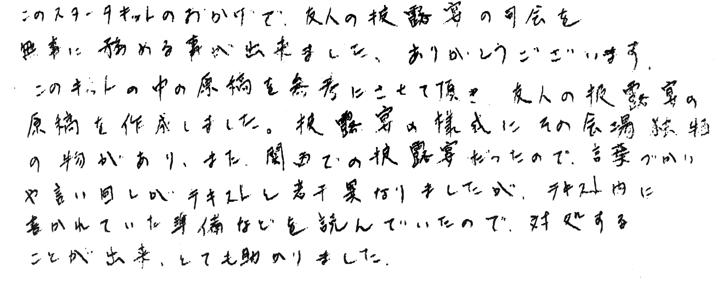 このスタータキットのおかげで、友人の披露宴の司会を
無事に務める事が出来ました、ありがとうございます。
このキットの中の原稿を参考にさせて頂き、友人の披露宴の
原稿を作成しました。披露宴の様式にその会場独特
の物があり、また、関西での披露宴だったので、言葉づかい
や言い回しがテキストと若干異なりましたが、テキスト内に
書かれていた準備などを読んでいたので、対処する
ことが出来、とても助かりました。